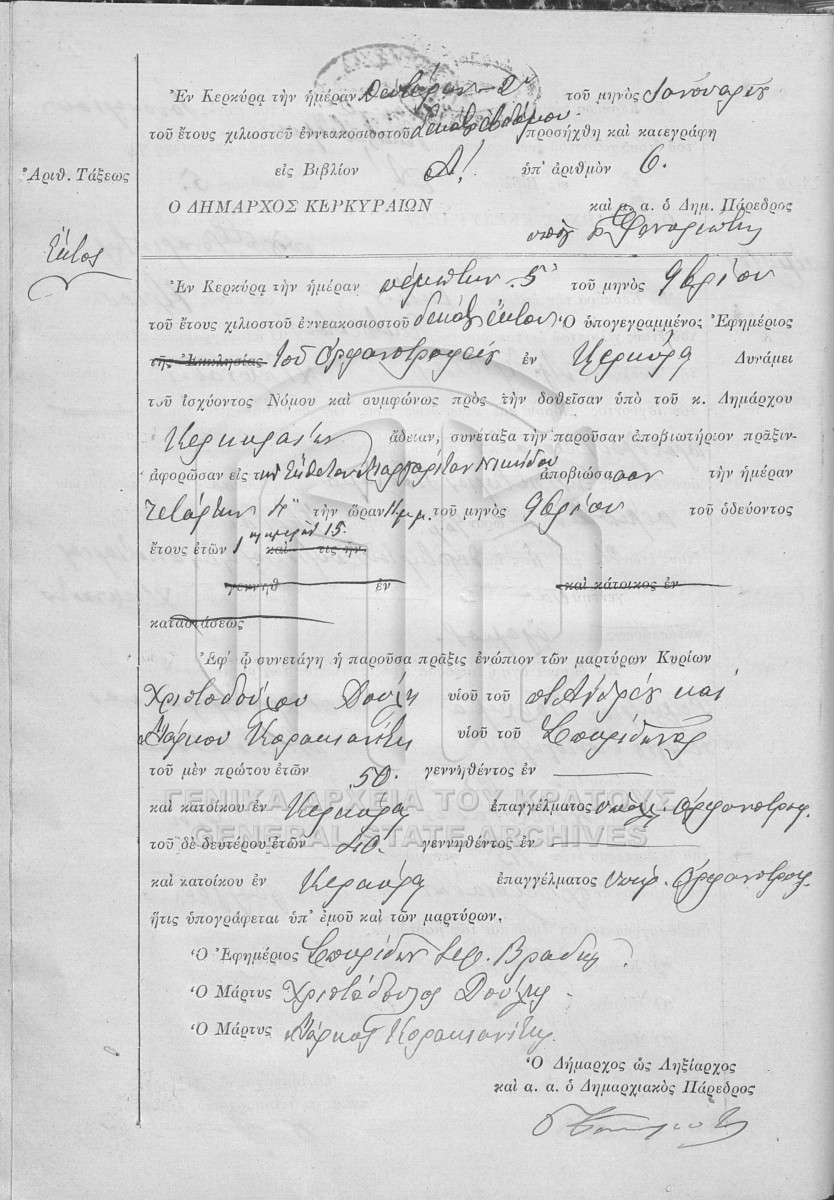 Ἐν Κερκύρᾳ τὴν ἡμέραν Δευτέραν 2αν τοῦ μηνὸς Ἰανουαρίου
τοῦ ἔτους χιλιοστοῦ ἐννεακοσιοστοῦ δεκάτου ἑβδόμου προσήχθη καὶ κατεγράφη
εἰς Βιβλίον Α! ὑπ' ἀριθμὸν 6.
Ο ΔΗΜΑΡΧΟΣ ΚΕΡΚΥΡΑΙΩΝ καὶ α. α. ὁ Δημ. Πάρεδρος
Ἀριθ. Τάξεως
Ἕκτος
Ἐν Κερκύρᾳ τὴν ἡμέραν πέμπτην 5 τοῦ μηνὸς 9βρίου
τοῦ ἔτους χιλιοστοῦ ἐννεακοσιοστοῦ δεκάτου ἕκτου Ὁ ὑπογεγραμμένος Ἐφημέριος
τῆς Ἐκκλησίας τοῦ Ὀρφανοτροφείου ἐν Κερκύρᾳ Δυνάμει
τοῦ ἰσχύοντος Νόμου καὶ συμφώνως πρὸς τὴν δοθεῖσαν ὑπὸ τοῦ κ. Δημάρχου
Κερκυραίων ἄδειαν, συνέταξα τὴν παροῦσαν ἀποβιωτήριον πρᾶξιν
ἀφορῶσαν εἰς τὴν ἔκθετον Μαργαρίταν Νικίδου ἀποβιώσασαν τὴν ἡμέραν
τετάρτην 4 τὴν ὥραν 11 μ.μ. τοῦ μηνὸς 9βρίου τοῦ ὁδεύοντος
ἔτους ἐτῶν 1 ἡμερῶν 15. καὶ τις ἦν
γεννηθ ἐν καὶ κάτοικος ἐν
καταστάσεως
Ἐφ' ᾧ συνετάγη ἡ παροῦσα πρᾶξις ἐνώπιον τῶν μαρτύρων Κυρίων
Χριστοδούλου Δούλη υἱοῦ τοῦ π Ἀνδρέου καὶ
Μάρκου Κορακιανίτη υἱοῦ τοῦ Σπυρίδωνος
τοῦ μὲν πρώτου ἐτῶν 50. γεννηθέντος ἐν
καὶ κατοίκου ἐν Κερκύρᾳ ἐπαγγέλματος ὑπάλ. Ὀρφανοτροφ.
τοῦ δὲ δευτέρου ἐτῶν 40. γεννηθέντος ἐν
καὶ κατοίκου ἐν Κερκύρᾳ ἐπαγγέλματος ὑπηρ. Ὀρφανοτροφ.
ἥτις ὑπογράφεται ὑπ' ἐμοῦ καὶ τῶν μαρτύρων.
Ὁ Ἐφημέριος Σπυρίδων Ἱερ. Βραδης
Ὁ Μάρτυς Χριστόδουλος Δούλης
Ὁ Μάρτυς Μάρκος Κορακιανίτης
Ὁ Δήμαρχος ὡς Ληξίαρχος
καὶ α. α. ὁ Δημαρχιακὸς Πάρεδρος
ΓΕΝΙΚΑ ΑΡΧΕΙΑ ΤΟΥ ΚΡΑΤΟΥΣ
GENERAL STATE ARCHIVES